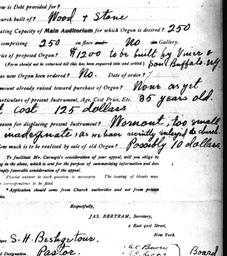 How is Debt provided for?
Church built of? Wood & Stone
Seating Capacity of Main Auditorium for which Organ is desired? 250
comprising 250 on floor No. in Gallery.
Price of proposed Organ? $1200 to be built by
(Form should not be returned till this has been enquired into and settled.) Buffalo NY
Has new Organ been ordered? No. Date of order?
Amount already raised toward purchase of Organ? None as yet
Particulars of present Instrument, Age, Cost Price, Etc. 35 years old.
cost 125 dollars
Reason for displacing present Instrument? Wornout, too small
inadequate, as we have recently enlarged the church.
How much is to be realized by sale of old Organ? Possibly 10 dollars
To facilitate Mr. Carnegie's consideration of your appeal, will you oblige by
in the above, which is sent for the purpose of summarizing information and does not
imply favorable consideration of the appeal.
Precise answer to each question is necessary. The leaving of blanks may
correspondence to be
* Application should come from Church authorities and not from private
Respectfully,
JAS. BERTRAM, Secretary,
2 East 91st Street,
New York.
S. H.
Designation. Pastor.
Board